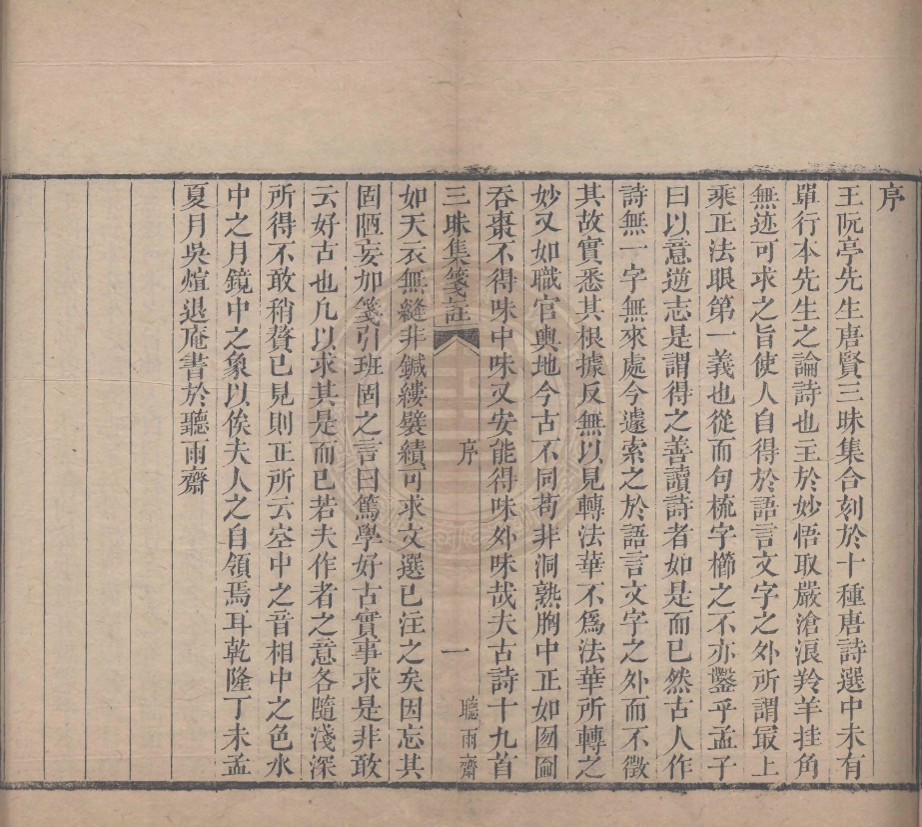 序
王阮亭先生唐賢三昧集合刻於十種唐詩選中未有
單行本先生之論詩也主於妙悟取嚴滄浪羚羊挂角
無迹可求之旨使人自得於語言文字之外所謂最上
乘正法眼第一義也從而句梳字櫛之不亦鑿乎孟子
曰以意逆志是謂得之善讀詩者如是而已然古人作
詩無一字無來處今遽索之於語言文字之外而不徵
其故實悉其根據反無以見轉法華不爲法華所轉之
妙又如職官輿地今古不同苟非洞熟胸中正如囫圇
吞棗不得味中味又安能得味外味哉夫古詩十九首
三昧集箋註 序 一 聽雨齋
如天衣無縫非鍼縷襞績可求文選已注之矣因忘其
固陋妄加箋引班固之言曰篤學好古實事求是非敢
云好古也凡以求其是而已若夫作者之意各隨淺深
所得不敢稍贅已見則正所云空中之音相中之色水
中之月鏡中之象以俟夫人之自領焉耳乾隆丁未孟
夏月吳煊退庵書於聽雨齋